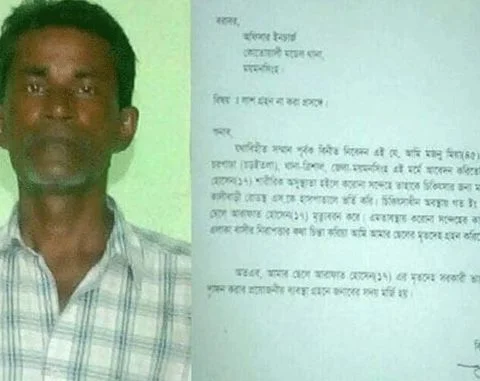 বরাবর,
অফিসার ইনচার্জ
কোতোয়ালী মডেল থানা,
ময়মনসিংহ।
বিষয় : লাশ গ্রহন না করা প্রসঙ্গে।
জনাব,
যথাবিহীত সম্মান পূর্বক বিনীত নিবেদন এই যে, আমি মজনু মিয়া(৪৫)
চরপাড়া (চড়ইতলা), থানা-ত্রিশাল, জেলা-ময়মনসিংহ এই মর্মে আবেদন করিতে
হোসেন(১৭) শারীরিক অসুস্থতা হইলে করোনা সন্দেহে তাহাকে চিকিৎসার জন্য ম
কালীবাড়ী রোডস্থ এস.কে হাসপাতালে ভর্তি করি। চিকিৎসাধীন অবস্থায় গত ইং
ছেলে আরাফাত হোসেন(১৭) মৃত্যুবরন করে। এমতাবস্থায় করোনা সন্দেহের কা
এলাকা বাসীর নিরাপত্তার কথা চিন্তা করিয়া আমি আমার ছেলের মৃতদেহ গ্রহন করি
অতএব, আমার ছেলে আরাফাত হোসেন(১৭) এর মৃতদেহ সরকারী ভা
দাফন করার প্রয়োজনীয় ব্যবস্থা গ্রহনে জনাবের সদয় মর্জি হয়।